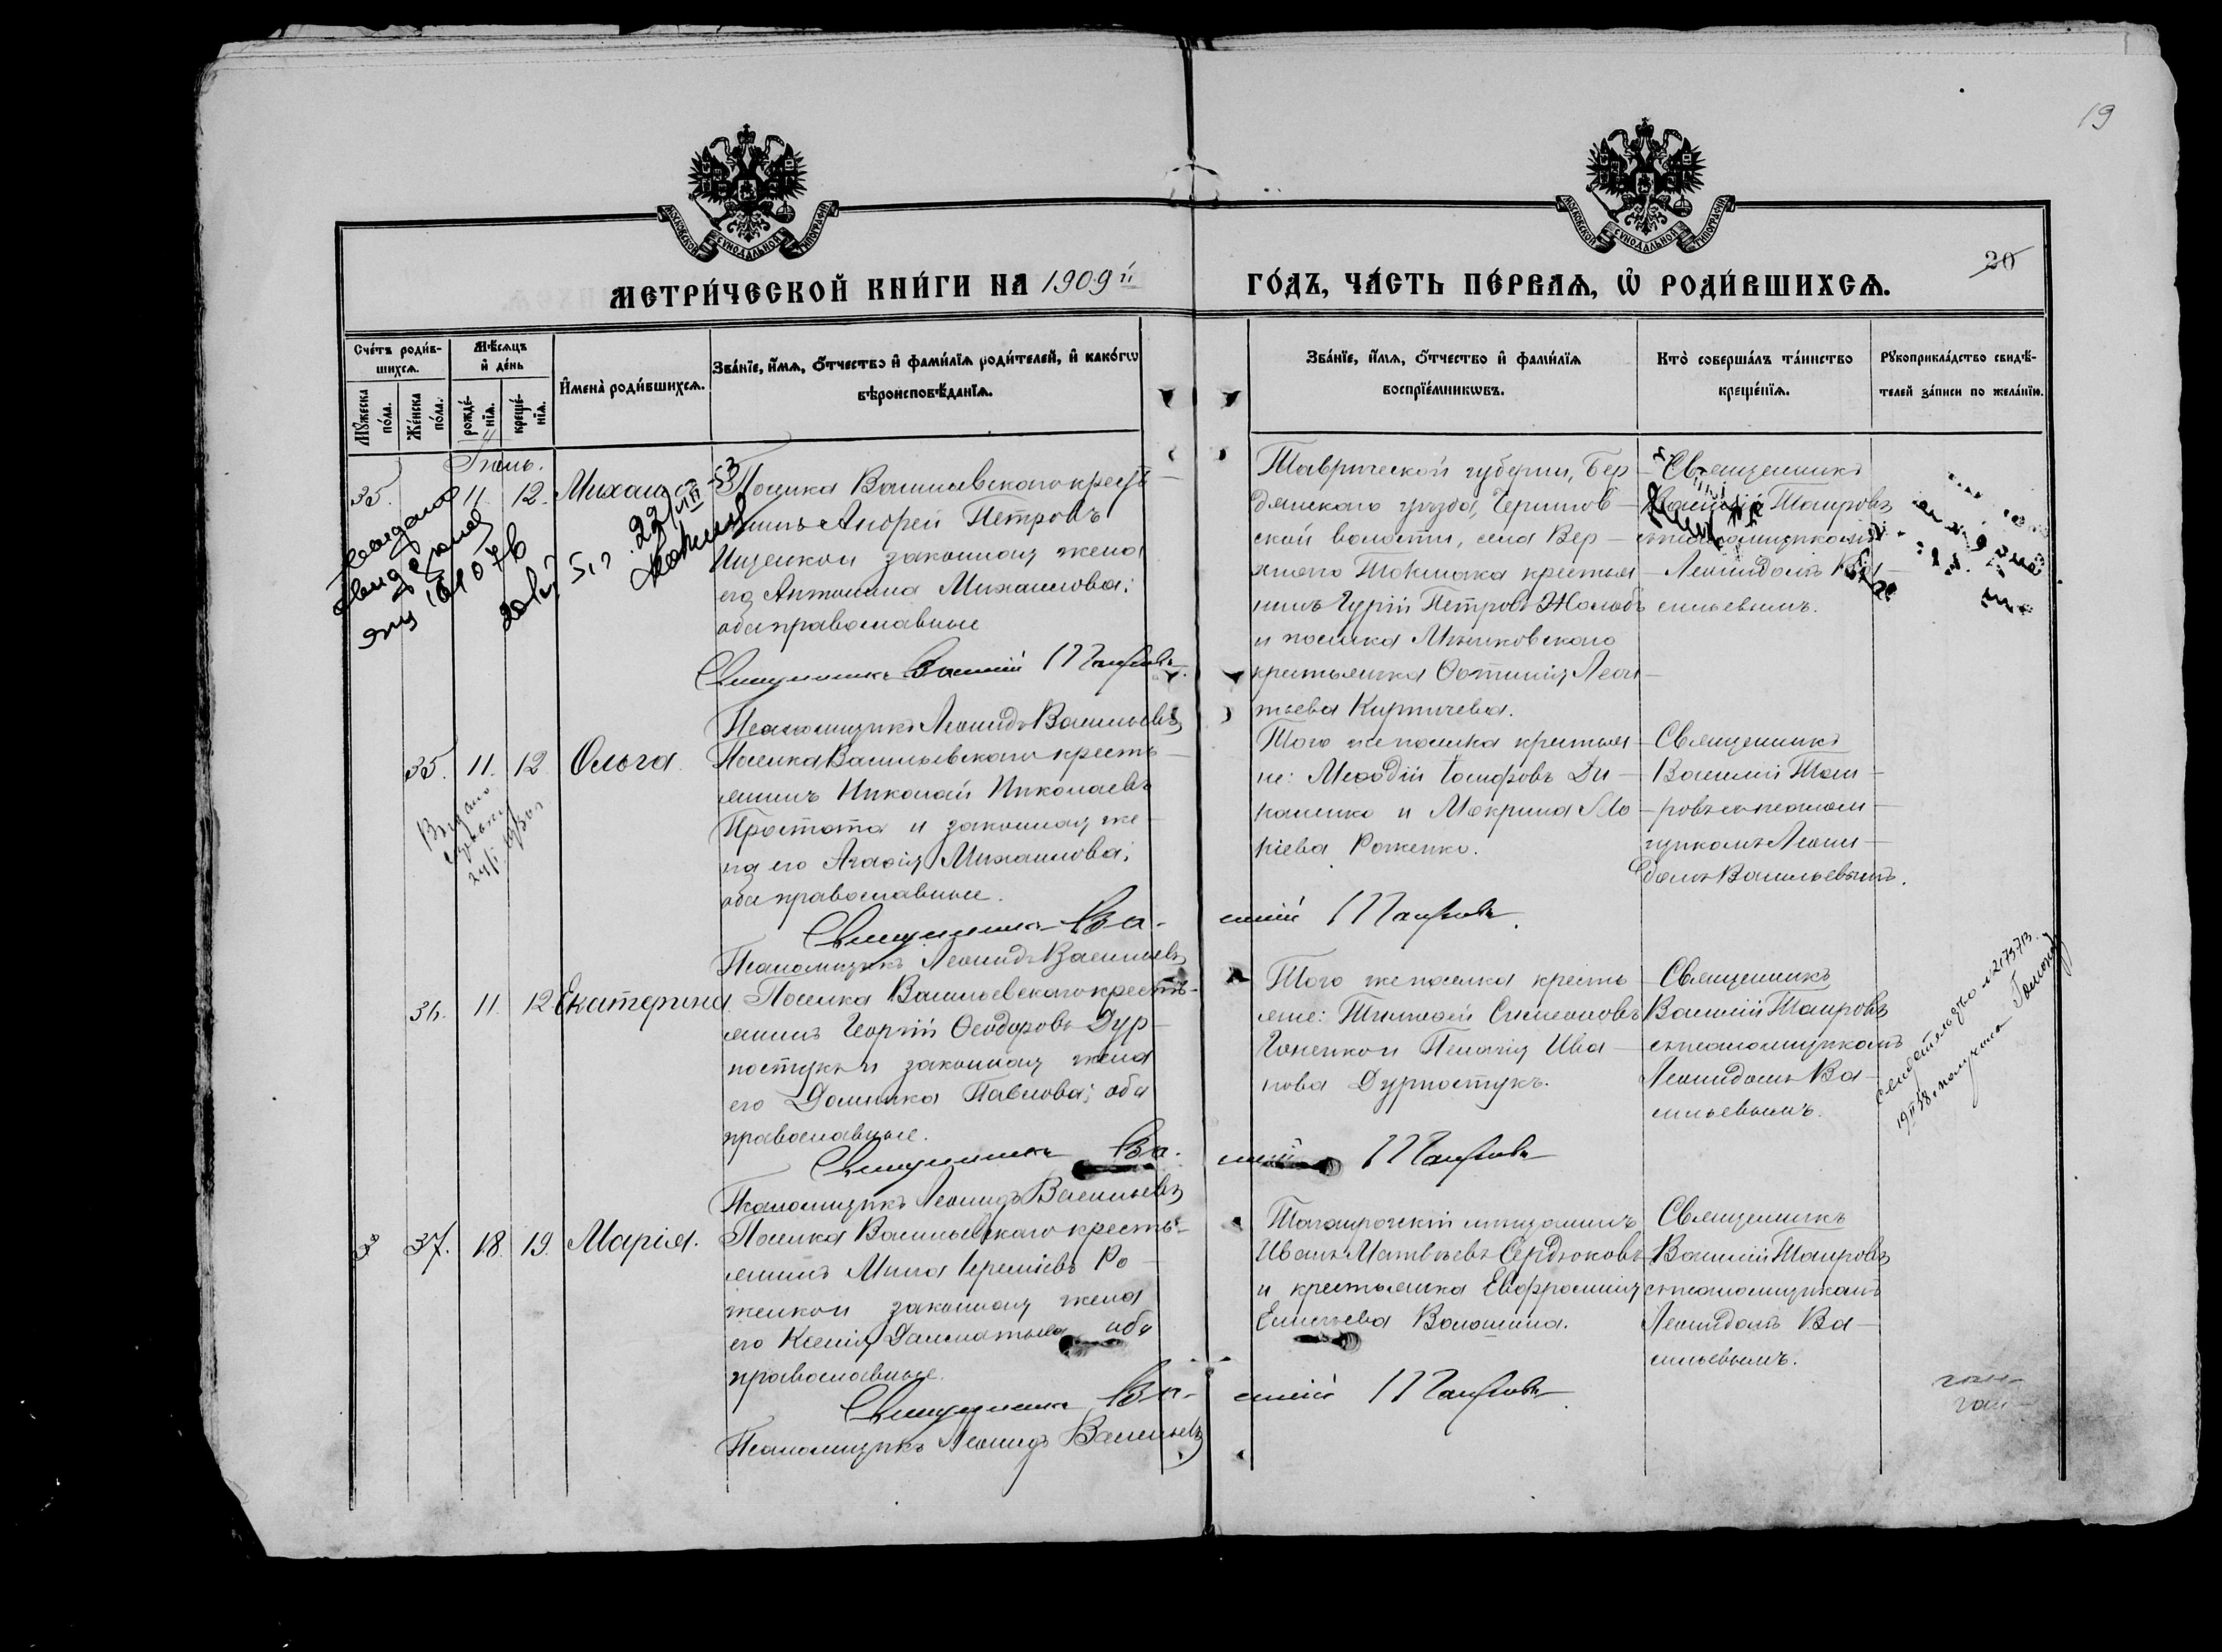 19
20
МОСКОВСКОЙ СУНОДАЛЬНОЙ ТИПОГРАФІИ
МОСКОВСКОЙ СУНОДАЛЬНОЙ ТИПОГРАФІИ
МЕТРИ́ЧЕСКОЙ КНИ́ГИ НА 1909й ГО́ДЪ, ЧА́СТЬ ПЕ́РВАѦ, Ѡ҆ РОДИ́ВШИХСѦ.
Сче́тъ роди́в-
шихсѧ.
Мꙋ́жеска по́ла.
Же́нска по́ла.
Мѣ́сѧцъ
и҆ де́нь
рожде́-
нїѧ.
креще́-
нїѧ.
И҆мена̀ роди́вшихсѧ.
Зва́нїе, и҆́мѧ, ѻ҆́тчество и҆ фами́лїѧ роди́телей, и҆ како́гѡ
вѣроисповѣ́данїѧ.
Зва́нїе, и҆́мѧ, ѻ҆́тчество и҆ фами́лїѧ
воспрїе́мникѡвъ.
Кто̀ соверша́лъ та́инство
креще́нїѧ.
Рꙋкоприкла́дство свидѣ́-
телей за́писи по жела́нїю.
35. 11. 12. Михаилъ
Поселка Васильевскаго кресть
янинъ Андрей Петровъ
Ищенко и законная жена
его Антонина Михаилова;
оба православные
Священникъ Василій Таировъ
Псаломщикъ Леонидъ Васильевъ
Таврической губерніи, Бер-
дянскаго уѣзда, Чернигов-
ской волости, села Вер-
хняго Токмака крестья
нинъ Гурій Петровъ Жолобъ
и поселка
крестьянка Фотинія Леон-
тьева Кирпичева.
Священникъ
Василій Таировъ
съ псаломщикомъ
Леонидомъ Ва-
сильевымъ.
35. 11. 12 Ольга.
Поселка Васильевскаго кресть-
янинъ Николай Николаевъ
Простота и законная же-
на его Агафія Михаилова;
оба православные.
Священникъ Ва-
силій Таировъ
Псаломщикъ Леонидъ Васильевъ
Того же поселка крестья-
не: Меѳодій
и Мокрина Мо
кіева Роженко.
Священникъ
Василій Таи-
ровъ съ псалом-
щикомъ Леони-
домъ Васильевымъ.
36. 11. 12 Екатерина.
Поселка Васильевскаго кресть-
янинъ Георгій Ѳеодоровъ Дур-
ностукъ и законная жена
его Домника Павлова; оба
православные.
Священникъ Ва-
силій Таировъ
Псаломщикъ Леонидъ Васильевъ
Того же поселка кресть-
яне: Тимофей Симеоновъ
Гоненко и Пелагія Ива-
нова Дурностукъ.
Священникъ
Василій Таировъ
съ псаломщикомъ
Леонидомъ Ва-
сильевымъ.
37. 18. 19. Марія.
Поселка Васильевскаго кресть-
янинъ Мина Іереміевъ Ро-
женко и законная жена
его Ксенія Далматьева оба
православные.
Священникъ Ва-
силій Таировъ
Псаломщикъ Леонидъ Васильевъ
Таганрогскій мѣщанинъ
Иванъ Матвѣевъ Сердюковъ
и крестьянка Евфросинія
Елисеева Волошина.
Священникъ
Василій Таировъ
съ псаломщикомъ
Леонидомъ Ва-
сильевымъ.